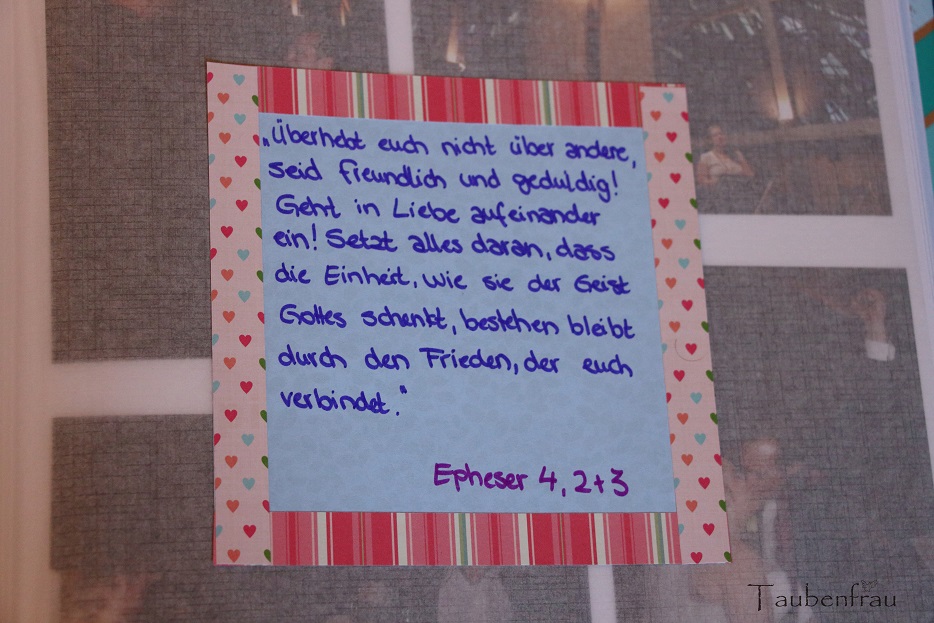 „Überhebt euch nicht über andere,
seid freundlich und geduldig!
Geht in Liebe aufeinander
ein! Setzt alles daran, dass
die Einheit, wie sie der Geist
Gottes schenkt, bestehen bleibt
durch den Frieden, der euch
verbindet.“
Epheser 4, 2+3
Taubenfrau